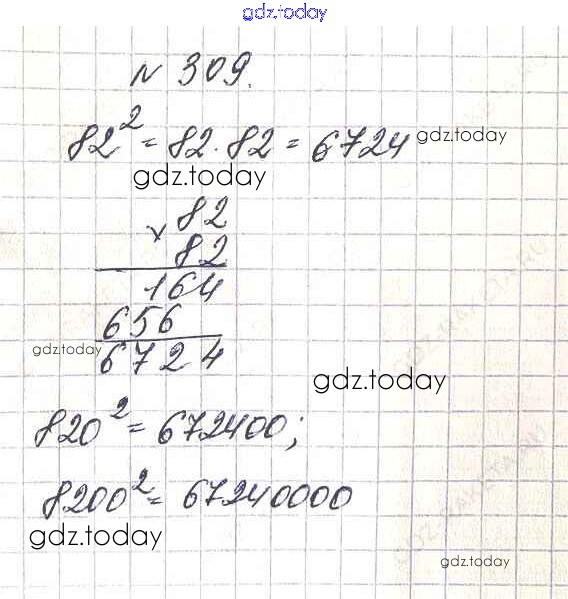 gdz.today
№ 309.
82² = 82 · 82 = 6724 gdz.today
gdz.today
82
× 82
164
656
gdz.today 6724
gdz.today
820² = 672400;
8200² = 67240000
gdz.today
gdz.today